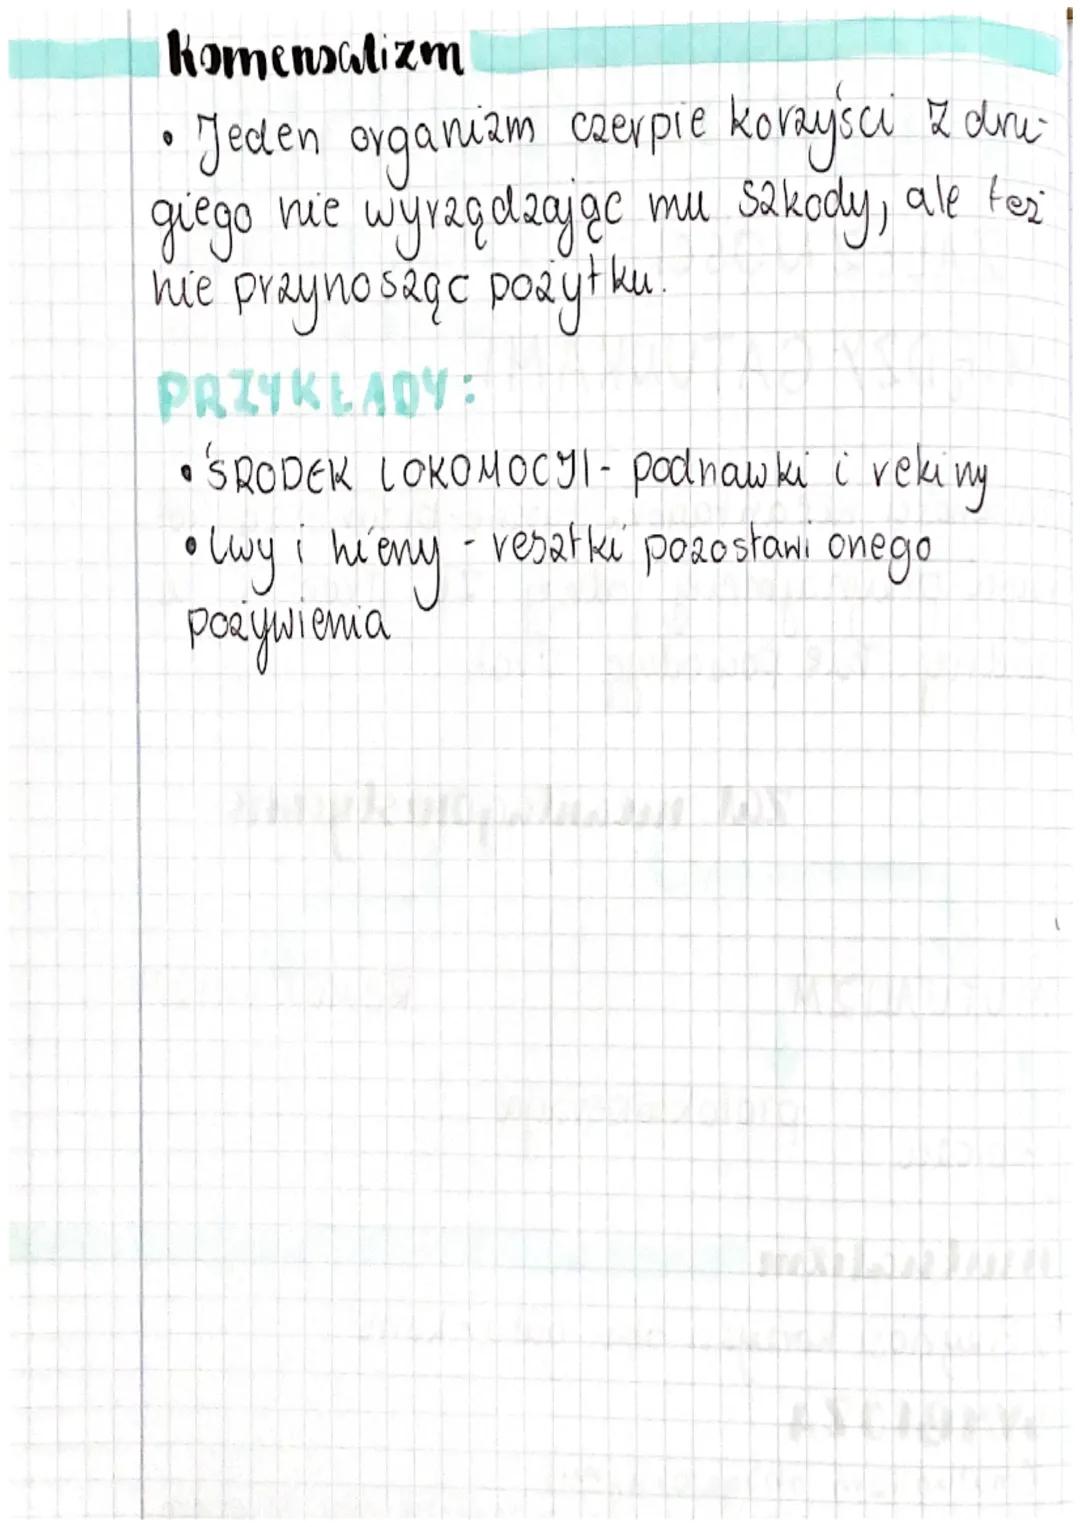 Komensalizm
• Jeden organizm czerpie korzyści z dru-
giego nie wyrządzając mu szkody, ale też
nie przynosząc pożytku.
PRZYKŁADY:
• ŚRODEK LOKOMOCJI - podnawki i rekiny
• lwy i hieny - resztki pozostawionego
pożywienia